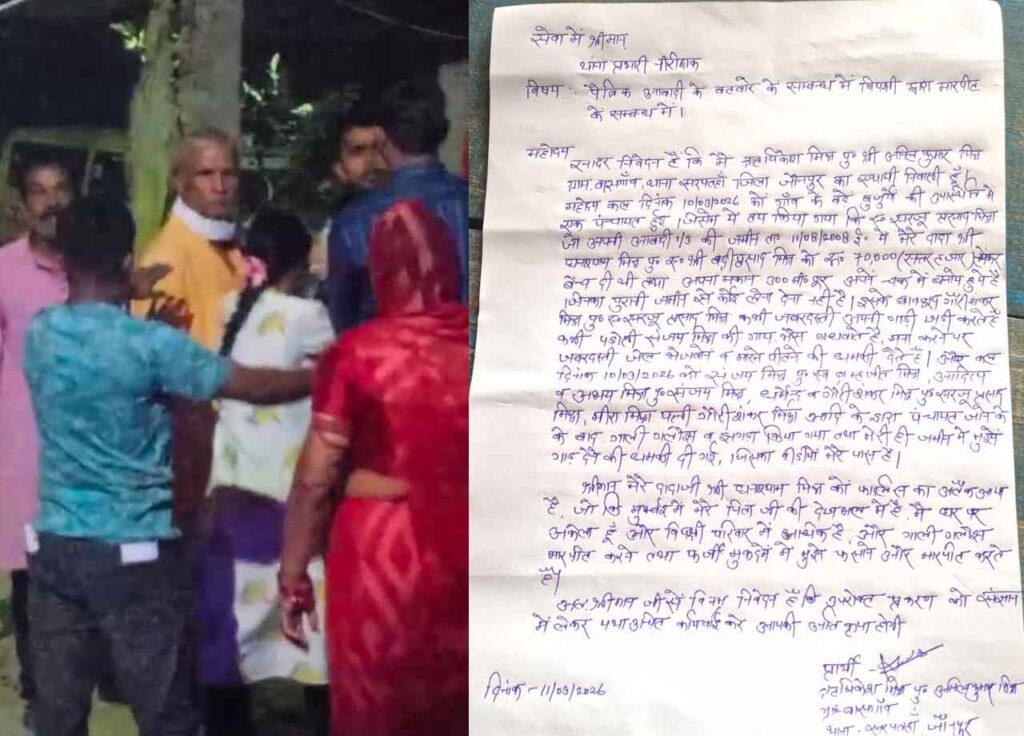 सेवा में श्रीमान्
थाना प्रभारी निरीक्षक
विषय :- पैत्रिक आबादी के बटवारे के सम्बन्ध में विपक्षी द्वारा मारपीट
के सम्बन्ध में।
महोदय
सादर निवेदन है कि मैं ऋषिकेश मिश्र पु० श्री अनिल कुमार मिश्र
ग्राम थाना सरपतहाँ जिला जौनपुर का स्थायी निवासी हूँ।
महोदय कल दिनांक 10/03/2026 को गाँव के बड़े बुजुर्गों की उपस्थिति में
एक पंचायत हुई। जिसमे में तय किया गया कि स्व० सरजू प्रसाद मिश्र
जो अपनी आबादी 1/3 की जमीन ता० 11/08/2008 ई० में मेरे दादा श्री
मिश्र पु० स्व० श्री प्रसाद मिश्र को रु० 70,000 (सत्तर हजार) लेकर
बेच दी थी तथा अपना मकान 300 मी० दूर अपने चक में बनाये हुये हैं
जिनका पुरानी जमीन से कोई लेना देना नहीं है। इसके बावजूद गौरीशंकर
मिश्र पु० स्व० सरजू प्रसाद मिश्र कभी जबरदस्ती अपनी गाड़ी खड़ी करते हैं
कभी पड़ोसी संजय मिश्र की गाय भैंस बंधवाते है, मना करने पर
जबरदस्ती जेल भेजवाने व मारने पीटने की धमकी देते हैं। और कल
दिनांक 10/03/2026 को संजय मिश्र पु० स्व० मिश्र, आदित्य
व अभय मिश्र पु० संजय मिश्र, धर्मेन्द्र व गौरीशंकर मिश्र पु० सरजू प्रसाद
मिश्र, मीरा मिश्रा पत्नी गौरीशंकर मिश्र आदि के द्वारा पंचायत जाने के
के बाद गाली गलौज व झगड़ा किया गया तथा मेरी ही जमीन में मुझे
गाड़ देने की धमकी दी गई, जिसका वीडियो मेरे पास है।
श्रीमान मेरे दादाजी श्री मिश्र को फालिस का अटैक आया
है, जो कि मुम्बई में मेरे पिता जी की देखभाल में है, मैं घर पर
अकेला हूँ और विपक्षी परिवार में अधिक है, और गाली गलौज
मारपीट करने तथा फर्जी मुकदमे में मुझे फसाने और मारपीट करते
हैं।
अतः श्रीमान जी से विनम्र निवेदन है कि उपरोक्त प्रकरण को संज्ञान
में लेकर यथा उचित कार्यवाई करे आपकी अति कृपा होगी
प्रार्थी -
दिनांक - 11/03/2026
ऋषिकेश मिश्र पु० अनिल कुमार मिश्र
ग्राम
थाना - सरपतहाँ, जौनपुर